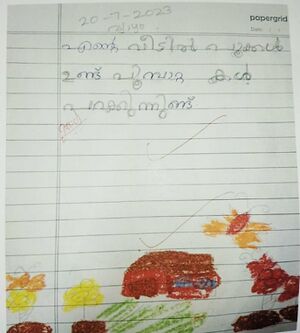 papergrid
Date: / /
20-7-2023
എന്റെ വീട്ടിൽ പൂക്കൾ
ഉണ്ട് പൂമ്പാറ്റ കൾ
പറക്കുന്നുണ്ട്